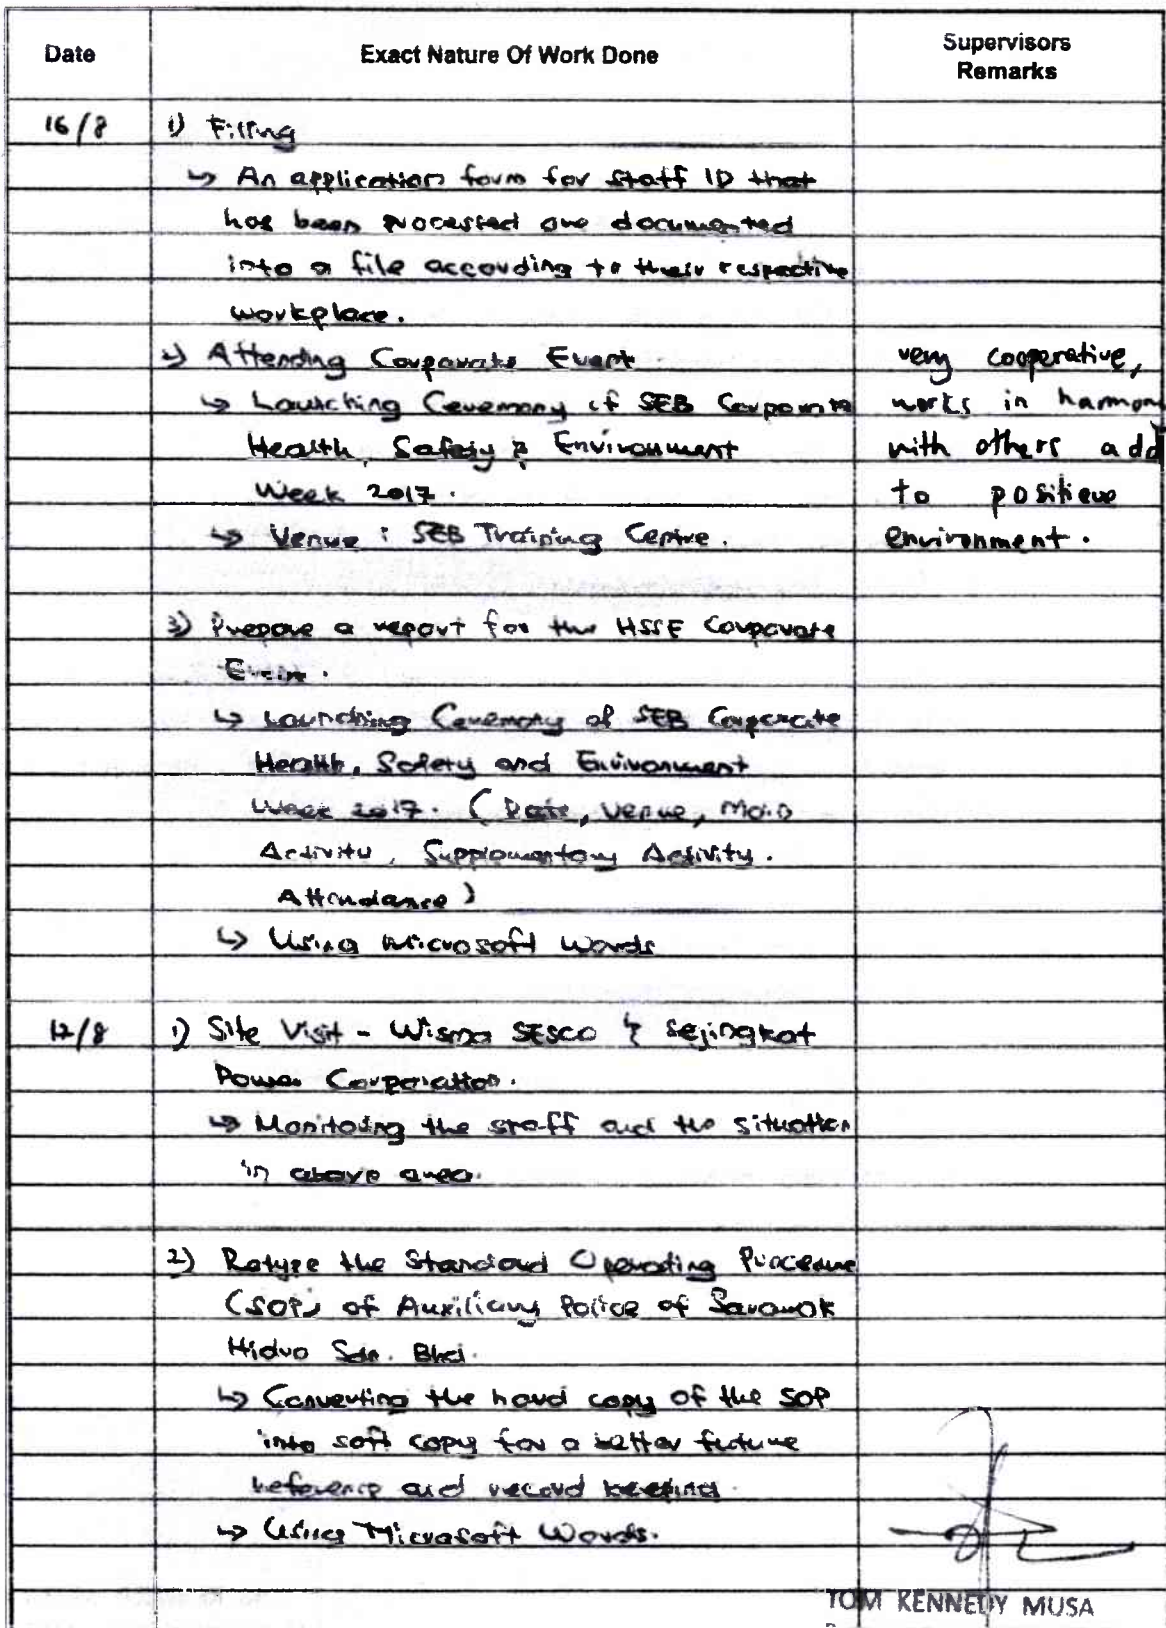 Date Exact Nature Of Work Done Supervisors
Remarks
16/8 1) Filling
↳ An application form for staff ID that
has been processed are documented
into a file according to their respective
workplace.
2) Attending Corporate Event.
↳ Launching Ceremony of SEB Corporate
Health, Safety & Environment
Week 2017.
↳ Venue : SEB Training Centre.
very cooperative,
works in harmony
with others add
to positieve
environment.
3) Prepare a report for the HSSE Corporate
Event.
↳ Launching Ceremony of SEB Corporate
Health, Safety and Environment
Week 2017. (Date, Venue, Main
Activity, Supplementary Activity.
Attendance)
↳ Using Microsoft Words
17/8 1) Site Visit - Wisma SESCO & Sejingkat
Power Corporation.
↳ Monitoring the staff and the situation
in above area.
2) Retype the Standard Operating Procedure
(SOP) of Auxiliary Police of Sarawak
Hidro Sdn. Bhd.
↳ Converting the hard copy of the SOP
into soft copy for a better future
reference and record keeping.
↳ Using Microsoft Words.
TOM KENNEDY MUSA